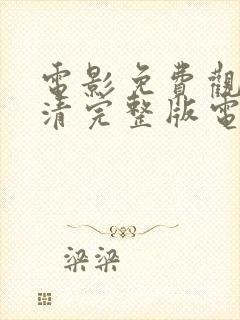 電影免費觀
清完整版電
梁梁